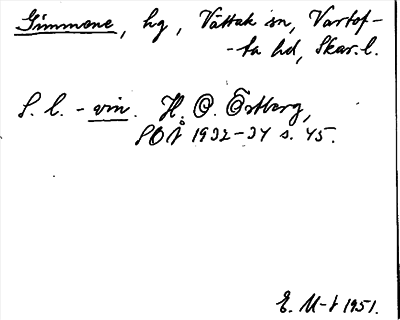 Gimmene, hg, Våttak sn, Vartof-
-ta hd, Skar. l.
S. l. -vin. H. O. Östberg,
SOÅ 1932-34 s. 45.
E. M-t 1951.